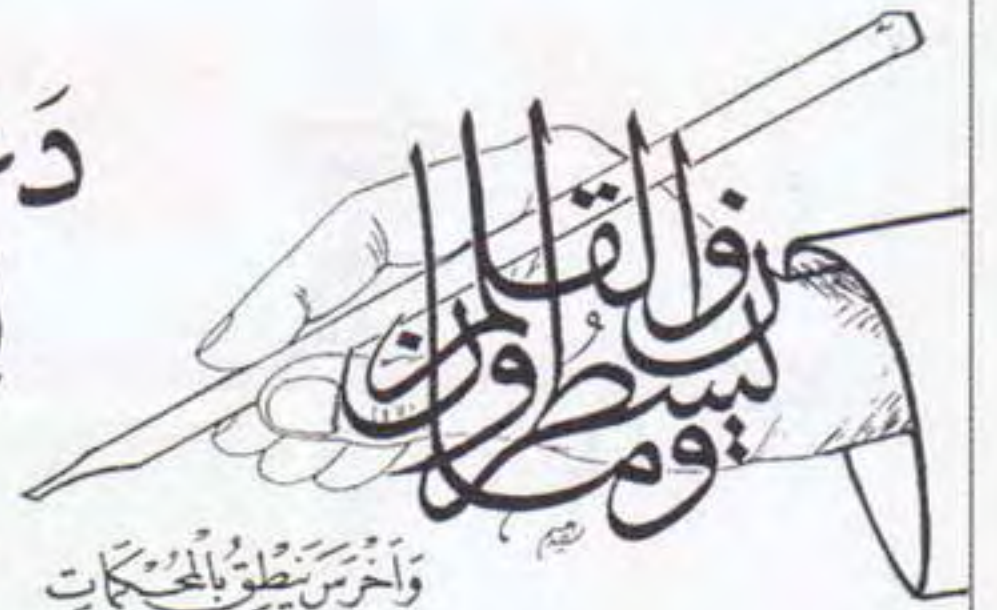 ن والقلم
وما يسطرون
وَأَخْرَسَ يَنْطِقُ بِالْمُحْكَمَاتِ